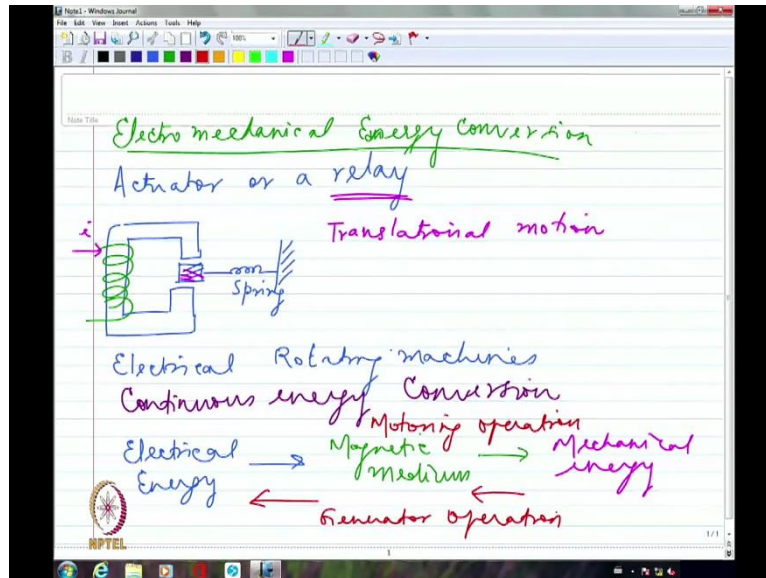 Note1 - Windows Journal
File Edit View Insert Actions Tools Help
100%
B I
Note Title
Electromechanical Energy Conversion
Actuator or a relay
i
Translational motion
Spring
Electrical Rotating machines
Continuous energy Conversion
Motoring operation
Electrical Energy
Magnetic medium
Mechanical energy
Generator operation
NPTEL
1/1
1